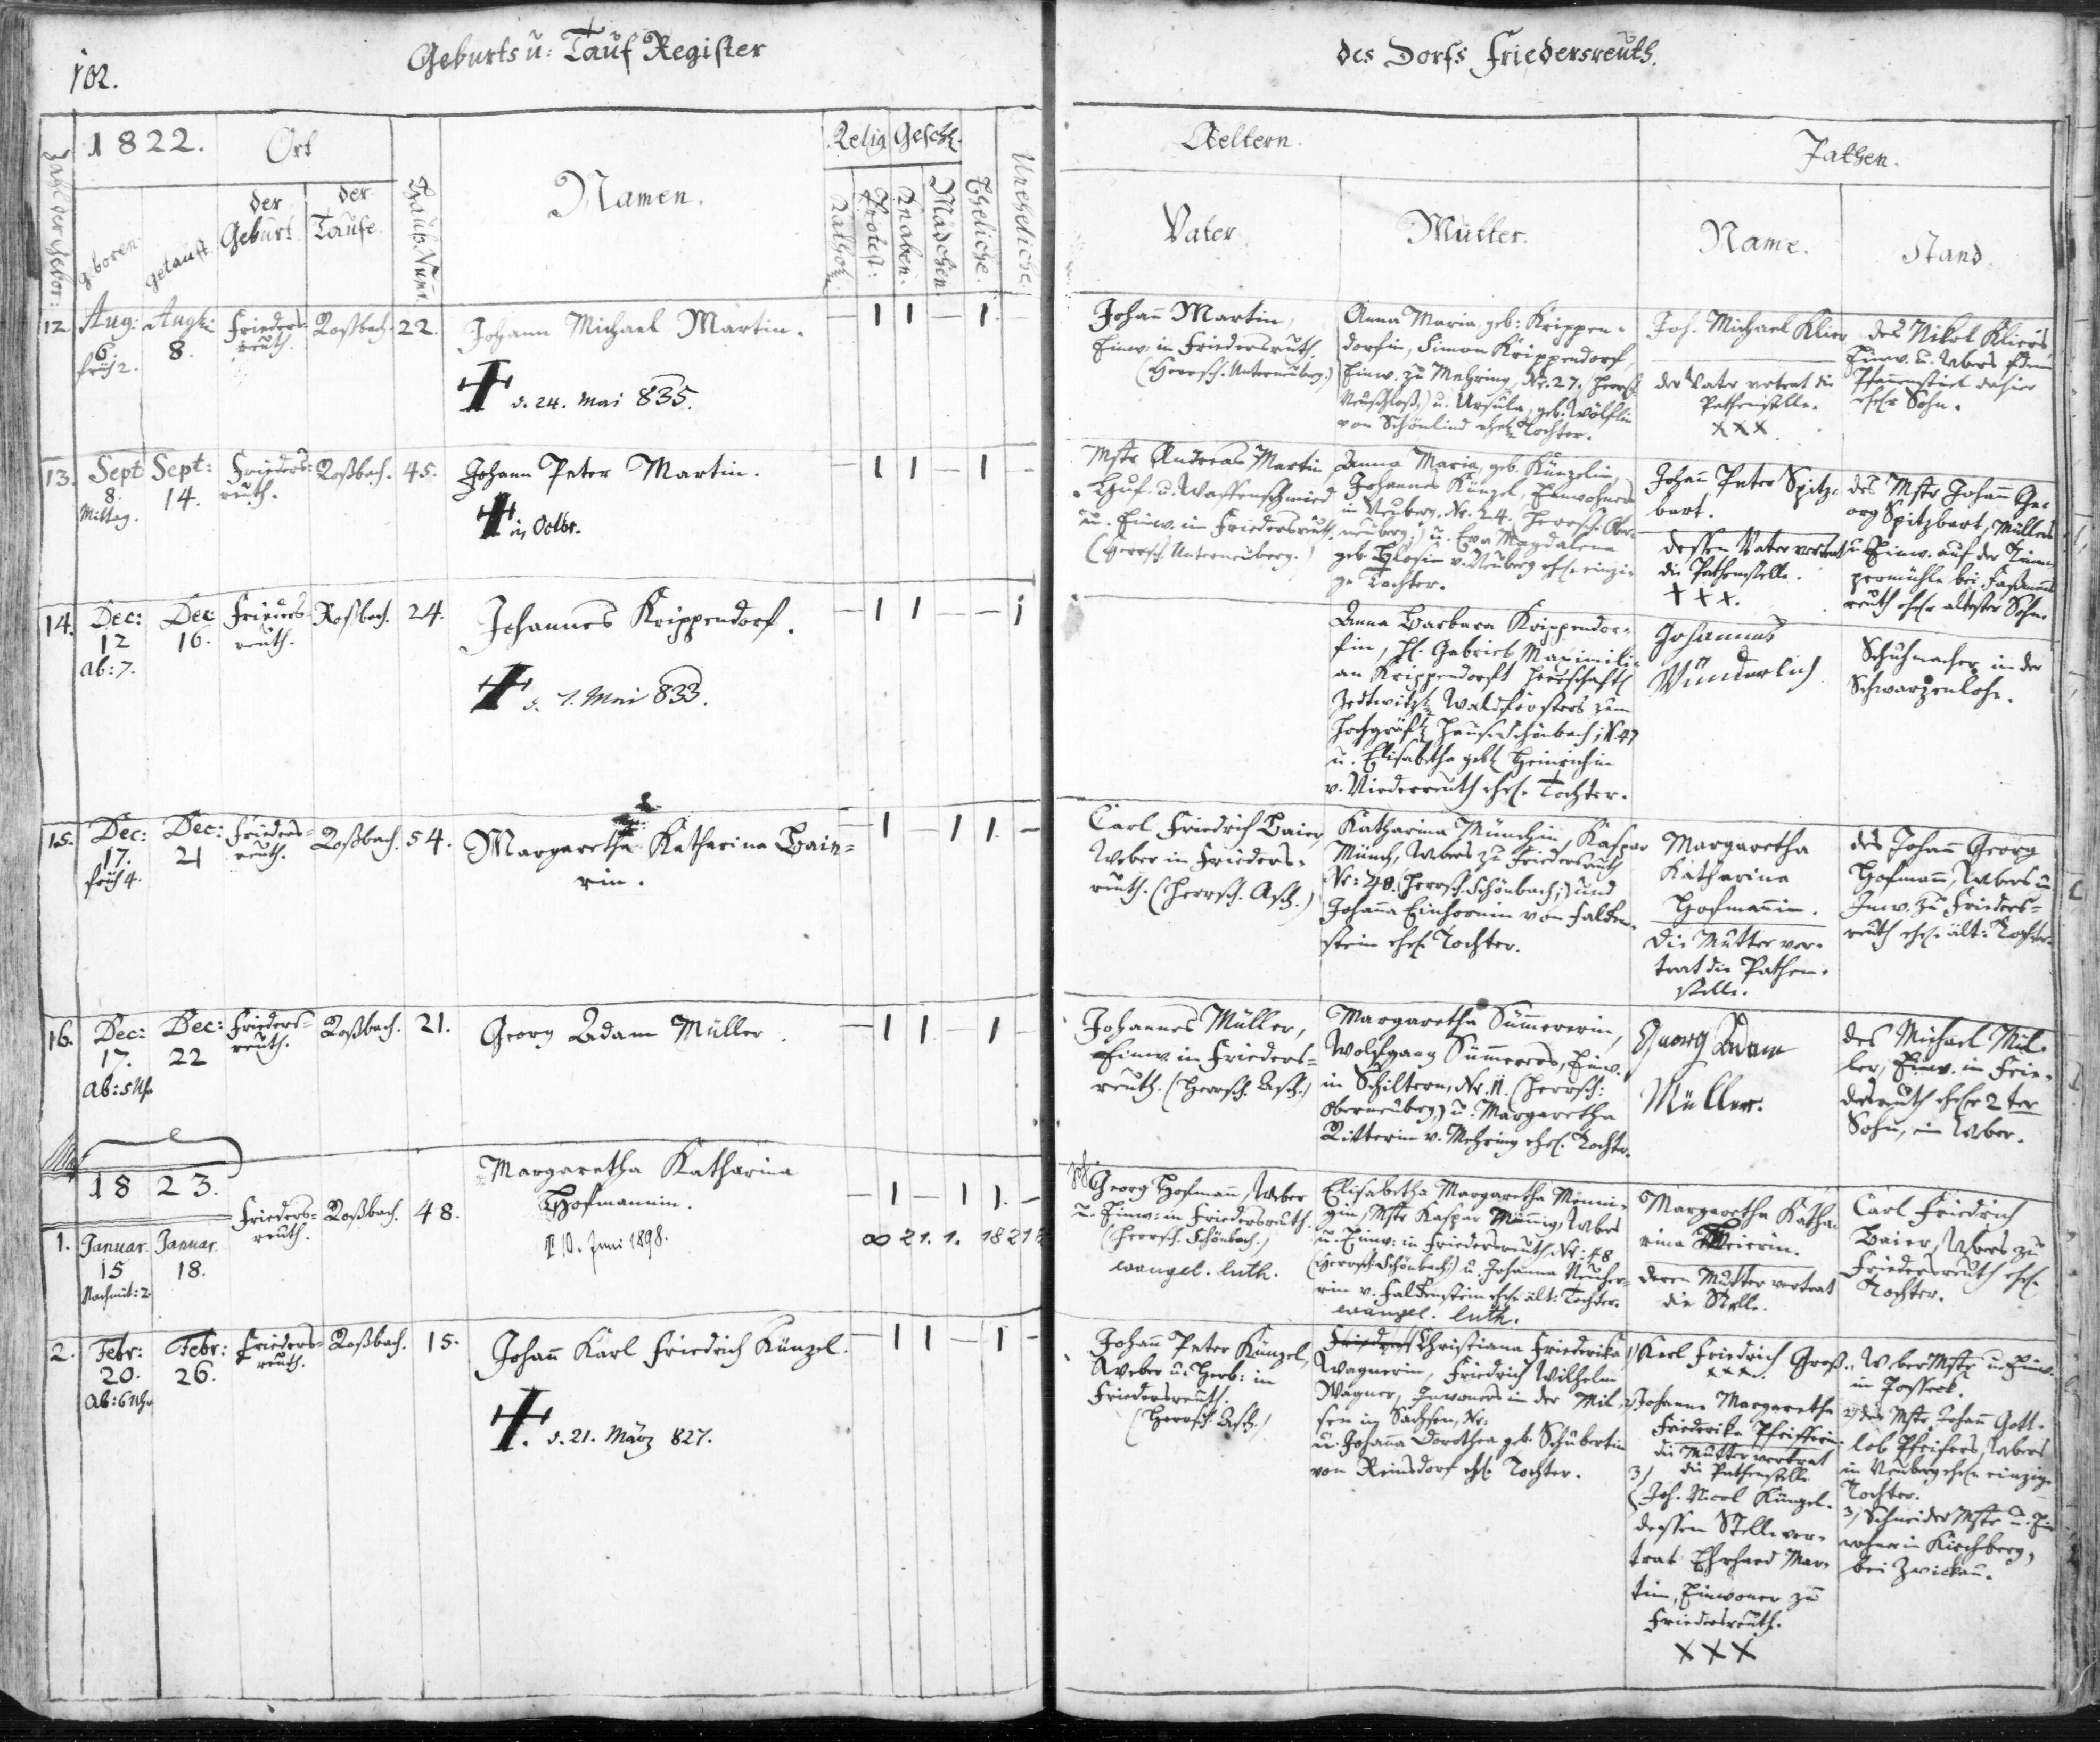 102.
Geburts u: Tauf Register
des Dorfs Friedersreuth.
Zahl der Gebor:
1822.
Ort
geboren.
getauft.
der Geburt.
der Taufe.
Hauß Num̄.
Namen.
Relig
Geschl.
Kathol.
Protest:
Knaben.
Mädchen.
Eheliche.
Uneheliche.
Aeltern.
Pathen.
Vater
Mutter.
Name.
Stand
12.
Aug: 6. früh 2.
Augt: 8.
Frieders-
reuth.
Roßbach.
22.
Johann Michael Martin.
— 1 1 — 1. —
✝ d. 24. Mai 835.
Johañ Martin,
Einw: in Friedersreuth.
(Herrsch. Unterneuberg.)
Anna Maria, geb: Krippen-
dorfin, Simon Krippendorf,
Einw. zu Mehring, Nr. 27. (Herrsch.
Neuschloß,) u. Ursula, geb. Wölflin
von Schönlind ehel. Tochter.
Joh. Michael Klier
der Vater vertrat die
Pathenstelle.
XXX
des Nikol Kliers,
Einw. u. Webers
Pfannenstiel dahier
ehel. Sohn.
13.
Sept 8. Mittag.
Sept: 14.
Frieders-
reuth.
Roßbach.
45.
Johann Peter Martin.
— 1 1 — 1 —
✝ in Octbr.
Mstr Andreas Martin,
Huf- u. Waffenschmied
u. Einw. in Friedersreuth
(Herrsch. Unterneuberg.)
Anna Maria, geb. Künzelin,
Johannes Künzel, Einwohners
in Neuberg, Nr. 24. (Herrsch. Ober-
neuberg;) u. Eva Magdalena
geb. v. Neuberg ehel. einzi-
ge Tochter.
Johañ Peter Spitz-
bart.
dessen Vater vertrat
die Pathenstelle.
XXX.
des Mstr Johañ Ge-
org Spitzbart, Müllers
u. Einw. auf der
bei
reuth ehel. ältester Sohn.
14.
Dec: 12 Ab: 7.
Dec 16.
Frieders-
reuth.
Roßbach.
24.
Johannes Krippendorf.
— 1 1 — — 1
✝ d. 7. Mai 833.
Anna Barbara Krippendor-
fin, H. Gabriel Maximili-
an Krippendorfs Herrschaftl.
Zedtwitz. Waldförsters zum
Hochgräfl. Hause Schönbach, N. 47
u. Elisabetha geb. Heinrichin
v. Niederreuth ehel. Tochter.
Johannes
Wunderlich
Schuhmacher in der
Schwarzenlohe.
15.
Dec: 17. früh 4.
Dec: 21
Frieders=
reuth.
Roßbach.
54.
Margaretha Katharina Bai-
rin.
— 1 1 1. —
Carl Friedrich Baier,
Weber in Frieders-
reuth. (Herrsch. Asch.)
Katharina Münchin, Kaspar
Münch, Webers zu Friedersreuth
Nr: 48. (Herrsch. Schönbach;) und
Johanna Einhornin von Falken-
stein ehel. Tochter.
Margaretha
Katharina
Hofmannin.
die Mutter ver-
trat die Pathen-
stelle.
des Johañ Georg
Hofmann, Webers u.
Inw. zu Frieders=
reuth ehel. ält: Tochter.
16.
Dec: 17. Ab: 5 Uhr
Dec: 22
Frieders=
reuth.
Roßbach.
21.
Georg Adam Müller.
— 1 1 1 —
Johannes Müller,
Einw. in Frieders=
reuth. (Herrsch. Asch.)
Margaretha Sümmererin,
Wolfgang Sümmerers, Einw.
in Schiltern, Nr. 11. (Herrsch:
Oberneuberg) u. Margaretha
Ritterin v. Mehring ehel. Tochter.
Georg Adam
Müller.
des Michael Mül-
ler, Einw. in Frie-
dersreuth ehel. 2ter
Sohn, ein Weber.
1823.
1.
Januar. 15 Nachmit: 2.
Januar. 18.
Frieders=
reuth.
Roßbach.
48.
Margaretha Katharina
Hofmannin.
10. Juni 1898.
— 1 — 1 1. —
∞ 21. 1. 18
Georg Hofmañ, Weber
u. Einw: in Friedersreuth.
(Herrsch. Schönbach.)
evangel. luth.
Elisabetha Margaretha Menni-
gin, Mstr Kaspar Mennig, Webers
u. Einw: in Friedersreuth, Nr: 48
(Herrsch. Schönbach;) u. Johanna
rin v. Falkenstein ehel. ält: Tochter.
evangel. luth.
Margaretha Katha-
rina Beierin.
deren Mutter vertrat
die Stelle.
Carl Friedrich
Baier, Webers zu
Friedersreuth ehel.
Tochter.
2.
Febr: 20. Ab: 6 Uhr
Febr: 26.
Frieders=
reuth.
Roßbach.
15.
Johañ Karl Friedrich Künzel.
— 1 1 — 1 —
✝. d. 21. März 827.
Johañ Peter Künzel,
Weber u. Herb: in
Friedersreuth.
(Herrsch. Asch.)
Christiana Friederika
Wagnerin, Friedrich Wilhelm
Wagner, Inwoners in der Mil-
sen in Sachsen, Nr:
u. Johañā Dorothea geb. Schubertin
von Reinsdorf ehel. Tochter.
1) Karl Friedrich Groß.
XXX.
2) Johanna Margaretha
Friederika Pfeifferin.
die Mutter vertrat
die Pathenstelle
3)
Joh. Nicol Künzel.
dessen Stelle ver-
trat Ehrhard Mar-
tin, Einwoner zu
Friedersreuth.
XXX
1. Weber Mstr u. Einw.
in Posseck.
2) des Mstr Johañ Gott-
lob Pfeifers, Webers
in Neuberg ehel. einzige
Tochter.
3) Schneider Mstr u. Ein
wohner in Kirchberg,
bei Zwickau.